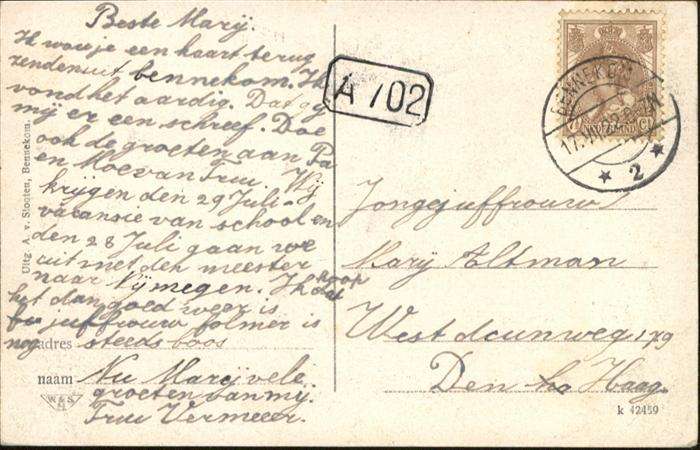 Beste Marij.
Ik wou je een kaart terug
zenden uit bennekom. Ik
vond het aardig. Dat gij
mij er een schreef. Doe
ook de groeten aan Pa
en Moe van Truu. Wij
krijgen den 29 Juli
vacansie van school en
den 28 Juli gaan we
uit met den meester
naar Nijmegen. Ik hoop dat
het dan goed weer is
juffrouw folmer is
nog steeds boos
adres
naam
Nu Marij vele
groeten van mij.
Truu Vermeer.
W & S
Uitg. A. v. Slooten, Bennekom.
A 702
NEDERLAND
BENNEKOM
2
Jongejuffrouw
Marij Altman
West duunweg 179
Den Haag
k 42459